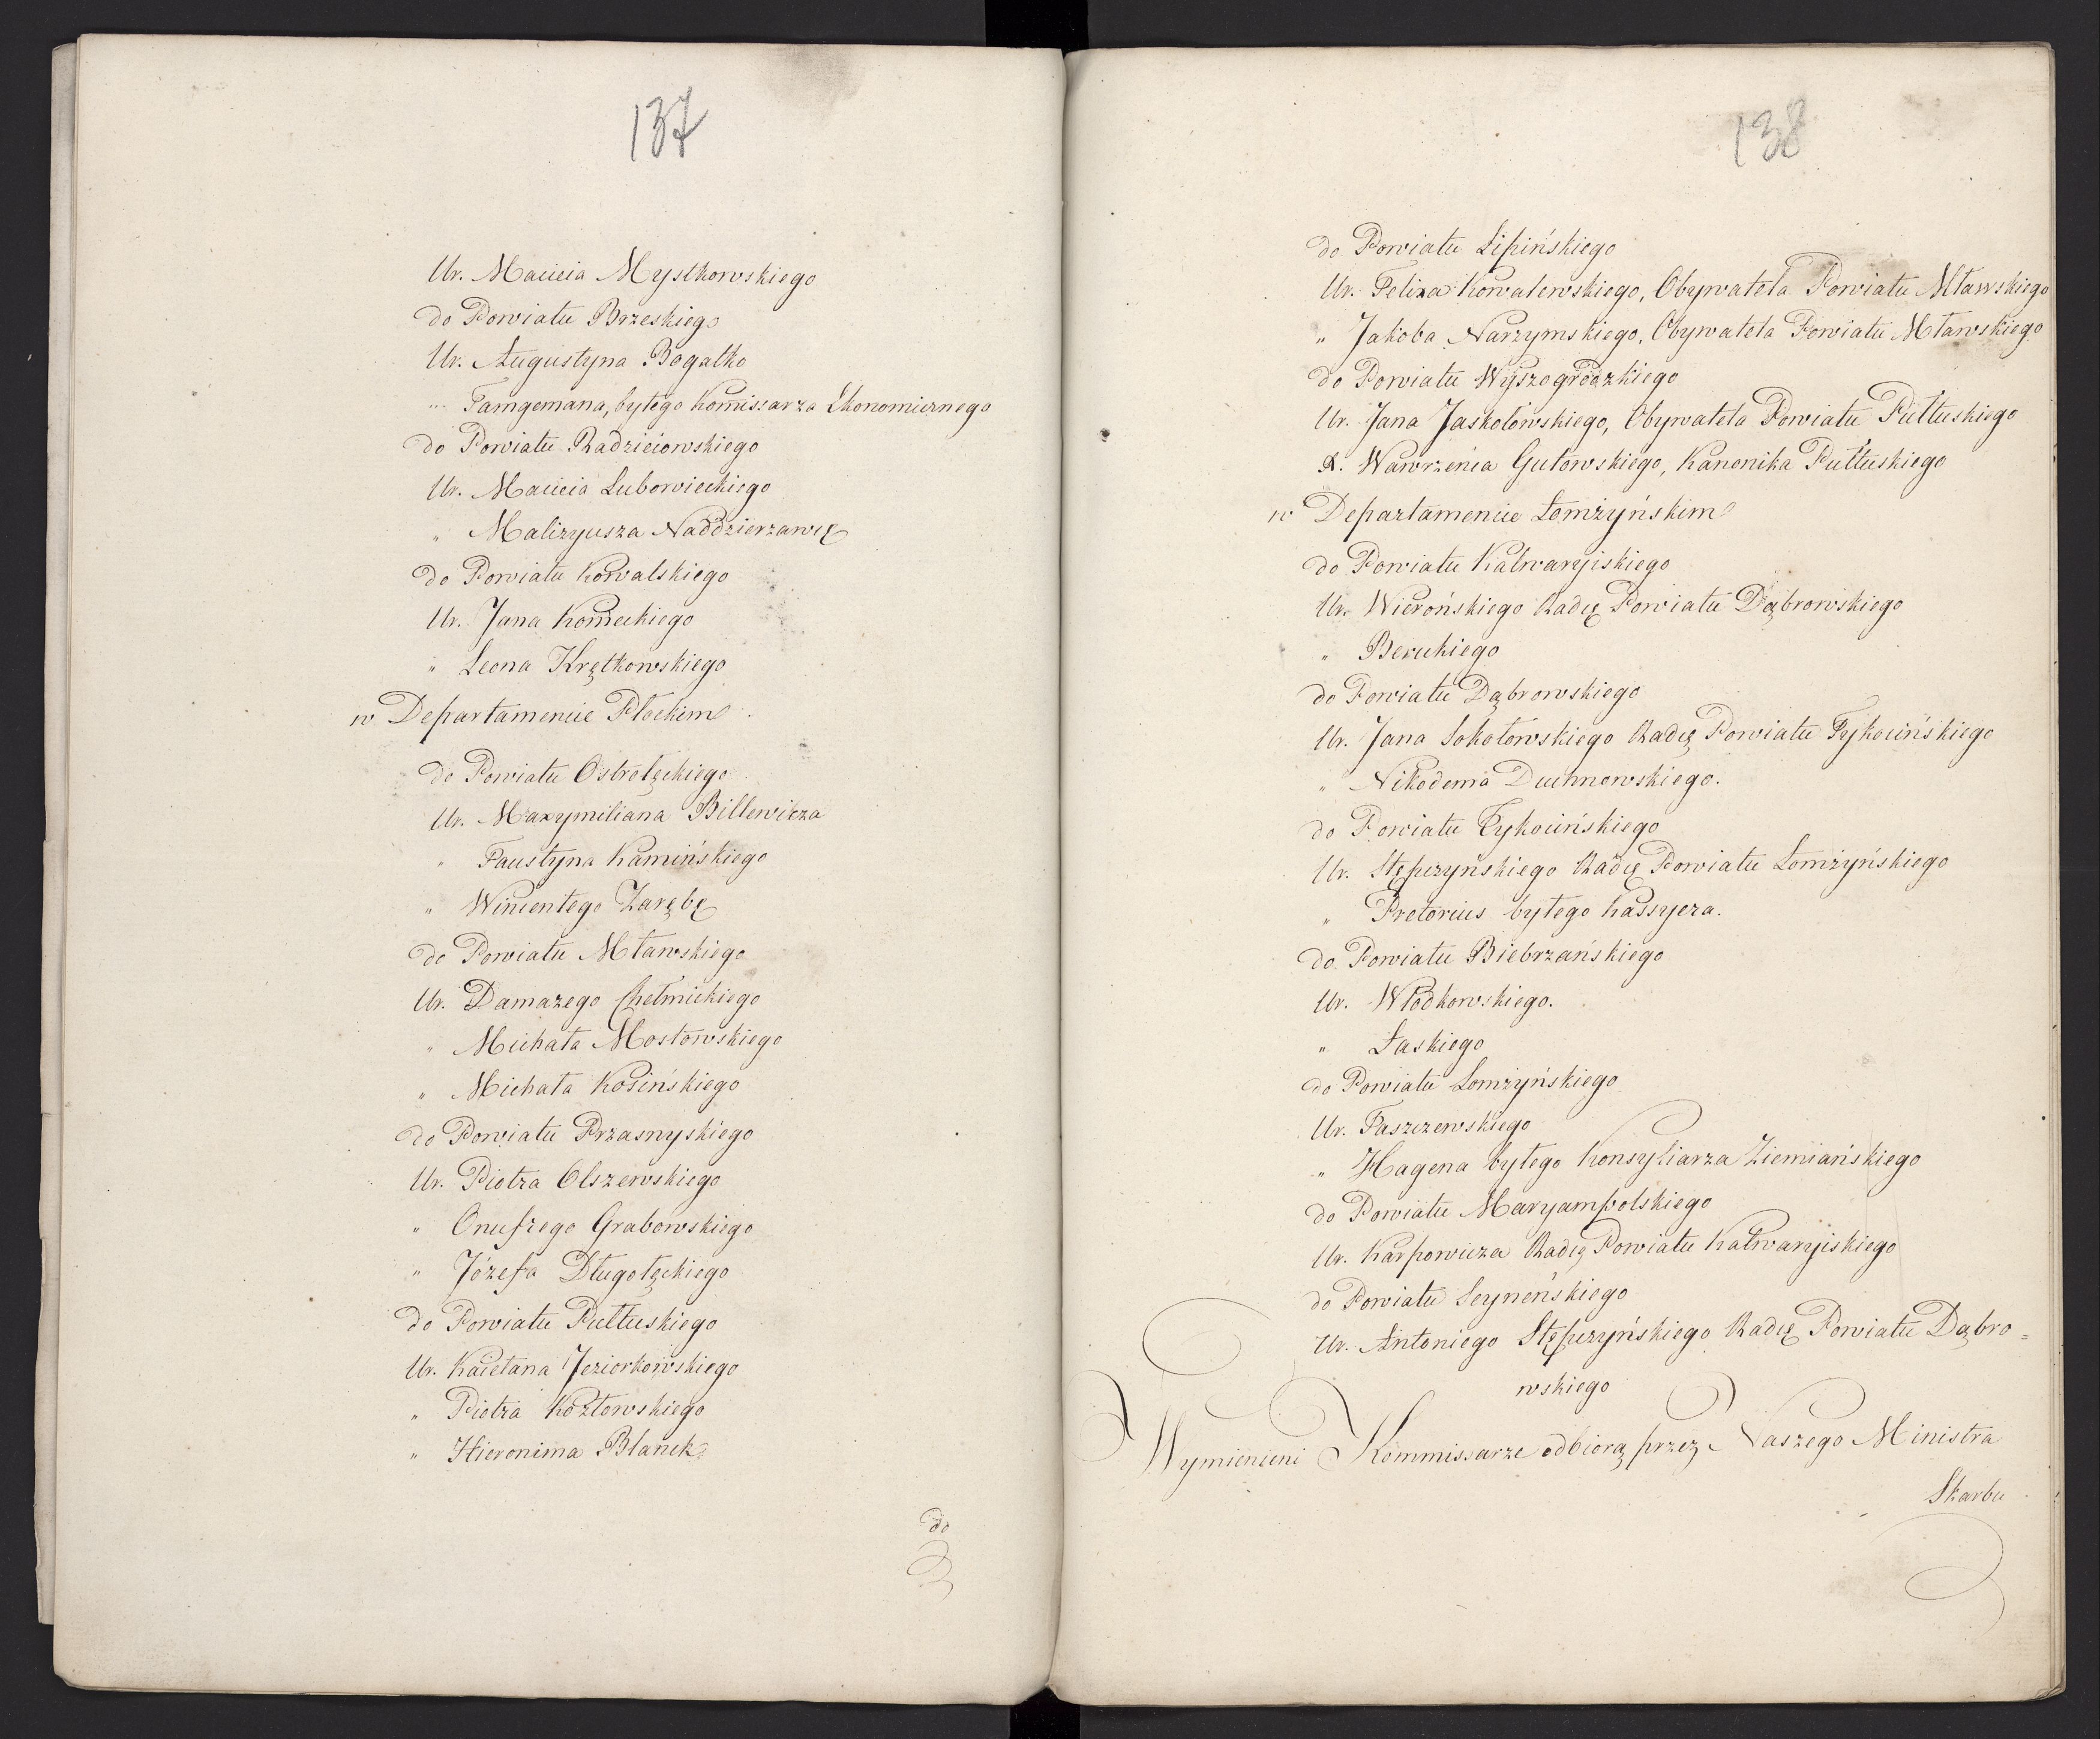 137
Ur. Macieia Mystkowskiego
do Powiatu Brzeskiego
Ur. Augustyna Bogatko
" Tamgemana, byłego Kom̄issarza Ekonomicznego
do Powiatu Radzieiowskiego
Ur. Macieia Luborwieckiego
" Malizyusza Naddzierzawcę
do Powiatu Kowalskiego
Ur. Jana Kom̄eckiego
" Leona Krętkowskiego
w Departamencie Płockim
do Powiatu Ostrołęckiego
Ur. Maxymiliana Billewicza
" Faustyna Kamińskiego
" Wincentego Zarębę
do Powiatu Mławskiego
Ur. Damazego Chełmickiego
" Michała Mostowskiego
" Michała Kosińskiego
do Powiatu Przasnyskiego
Ur. Piotra Olszewskiego
" Onufrego Grabowskiego
" Józefa Długołęckiego
do Powiatu Pułtuskiego
Ur. Kaietana Jeziorkowskiego
" Piotra Kozłowskiego
" Hieronima Blanck
do
138
do Powiatu Lipińskiego
Ur. Felixa Kowalewskiego, Obywatela Powiatu Mławskiego
" Jakoba Narzymskiego, Obywatela Powiatu Mławskiego
do Powiatu Wyszogrodzkiego
Ur. Jana Jaskolowskiego, Obywatela Powiatu Pułtuskiego
X. Wawrzenca Gutowskiego, Kanonika Pułtuskiego
w Departamencie Łomżyńskim
do Powiatu Kalwaryiskiego
Ur. Wierońskiego Radcę Powiatu Dąbrowskiego
" Bexuckiego
do Powiatu Dąbrowskiego
Ur. Jana Sokołowskiego Radcę Powiatu Tykocińskiego
" Nikodema Duchnowskiego.
do Powiatu Tykocińskiego
Ur. Stępczynskiego Radcę Powiatu Łomżyńskiego
" Pretorius byłego kassyera.
do Powiatu Biebrzańskiego
Ur. Włodkowskiego.
" Łaskiego
do Powiatu Łomżyńskiego
Ur. Taszczewskiego
" Hagena byłego Konsyliarza Ziemiańskiego
do Powiatu Maryampolskiego
Ur. Karpowicza Radcę Powiatu Kalwaryiskiego
do Powiatu Seyneńskiego
Ur. Antoniego Stępczyńskiego Radcę Powiatu Dąbro=
wskiego
Wymienieni Kommissarze odbiorą przez Naszego Ministra
Skarbu